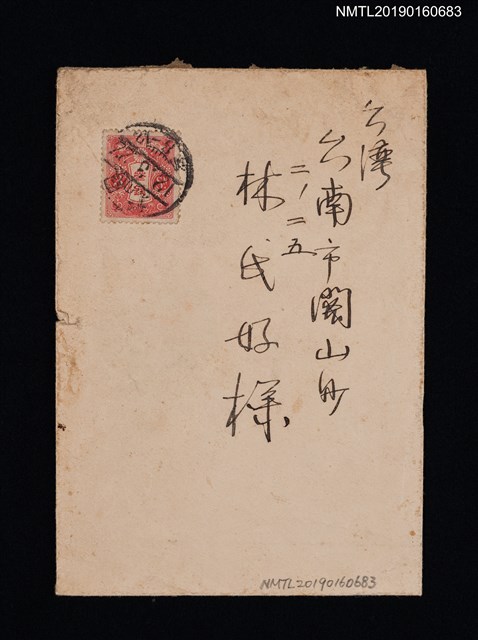 NMTL20190160683
台湾
台南市閣山町
二ノ二五
林氏好様
NMTL20190160683